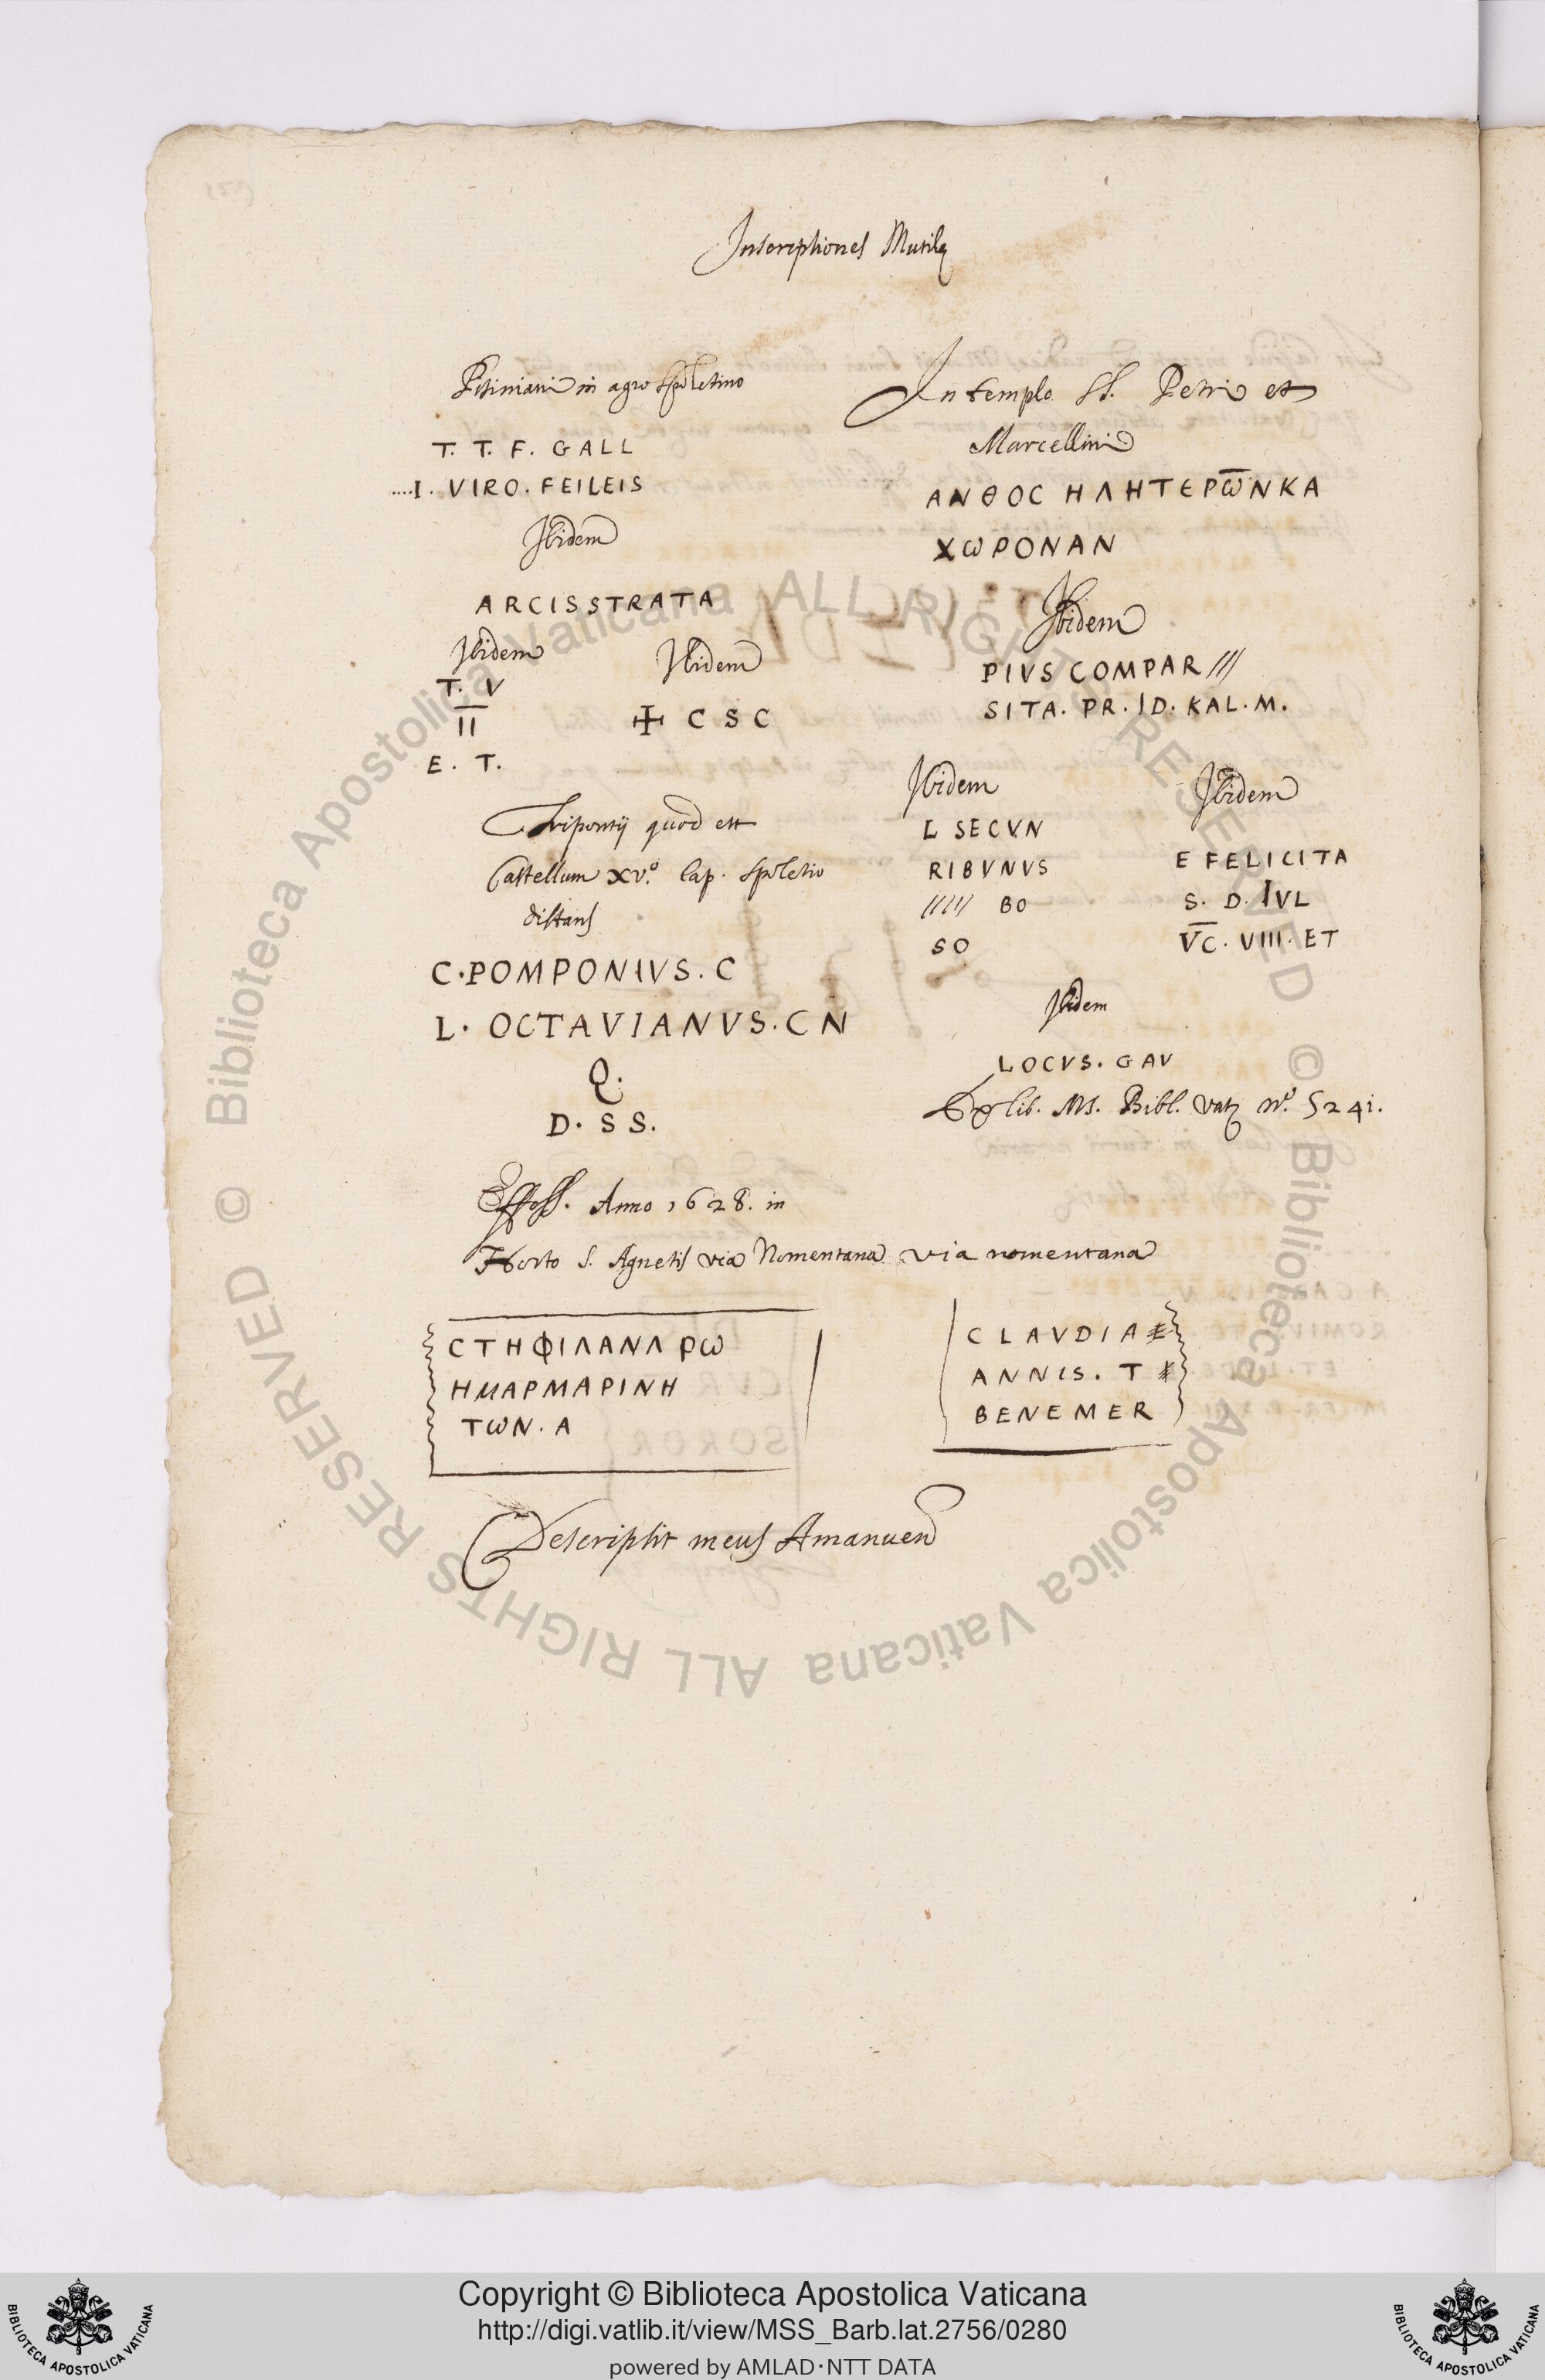 Inscriptiones Mutilę
Pitiniani in agro Spoletino
T. T. F. GALL
....I. VIRO. FEILEIS
Ibidem
ARCISSTRATA
Ibidem
T. V
II
E. T.
Ibidem
✠ C S C
Triponzij quod est
Castellum xv.º lap. Spoletio
distans
C·POMPONIVS. C
L· OCTAVIANVS. CN
Q.
D. S S.
Effoss. Anno 1628. in
Horto S. Agnetis via Nomentana via nomentana
CTHΦIΛANΛ Ρω
HMAPMAPINH
TωN. A
In templo SS. Petri et
Marcellini
ANΘOC HΛHTЄPω̅NKA
XωPONAN
Ibidem
PIVS COMPAR ///
SITA. PR. ID. KAL. M.
Ibidem
L SECVN
RIBVNVS
///// BO
SO
Ibidem
E FELICITA
S. D. IVL
V̅C. VIII. ET
Ibidem
LOCVS. GAV
Ex lib. MS. Bibl. Vatę n.º 5241.
CLAVDIA
ANNIS. T
BENEMER
Descripsit meus Amanuen
© Biblioteca Apostolica Vaticana ALL RIGHTS RESERVED
© Biblioteca Apostolica Vaticana ALL RIGHTS RESERVED
Copyright © Biblioteca Apostolica Vaticana
http://digi.vatlib.it/view/MSS_Barb.lat.2756/0280
powered by AMLAD·NTT DATA
BIBLIOTECA APOSTOLICA VATICANA
BIBLIOTECA APOSTOLICA VATICANA